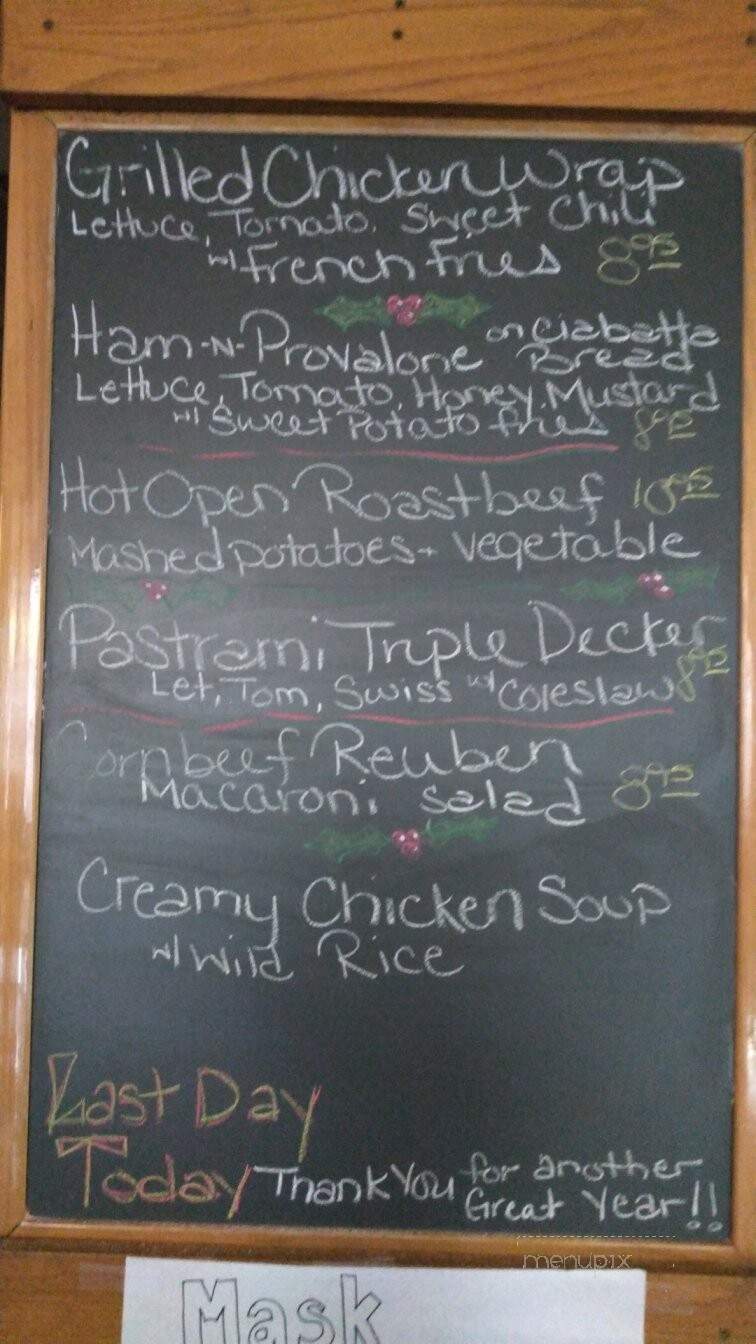 Grilled Chicken Wrap
Lettuce, Tomato, Sweet Chili
w/ French Fries 8.95
Ham-N-Provalone on Ciabatta Bread
Lettuce, Tomato, Honey Mustard
w/ Sweet Potato fries 8.95
Hot Open Roastbeef 10.95
Mashed potatoes + vegetable
Pastrami Triple Decker
Let, Tom, Swiss w/ Coleslaw 8.95
Cornbeef Reuben
Macaroni salad 8.95
Creamy Chicken Soup
w/ Wild Rice
Last Day
Today Thank You for another
Great Year!!
menupix
Mask